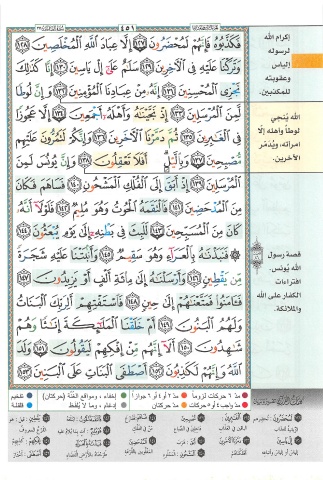 ٤٥١
فَكَذَّبُوهُ فَإِنَّهُمْ لَمُحْضَرُونَ ﴿١٢٧﴾ إِلَّا عِبَادَ اللَّهِ الْمُخْلَصِينَ ﴿١٢٨﴾
وَتَرَكْنَا عَلَيْهِ فِي الْآخِرِينَ ﴿١٢٩﴾ سَلَامٌ عَلَىٰ إِلْ يَاسِينَ ﴿١٣٠﴾ إِنَّا كَذَٰلِكَ
نَجْزِي الْمُحْسِنِينَ ﴿١٣١﴾ إِنَّهُ مِنْ عِبَادِنَا الْمُؤْمِنِينَ ﴿١٣٢﴾ وَإِنَّ لُوطًا
لَّمِنَ الْمُرْسَلِينَ ﴿١٣٣﴾ إِذْ نَجَّيْنَاهُ وَأَهْلَهُ أَجْمَعِينَ ﴿١٣٤﴾ إِلَّا عَجُوزًا
فِي الْغَابِرِينَ ﴿١٣٥﴾ ثُمَّ دَمَّرْنَا الْآخَرِينَ ﴿١٣٦﴾ وَإِنَّكُمْ لَتَمُرُّونَ عَلَيْهِم
مُّصْبِحِينَ ﴿١٣٧﴾ وَبِاللَّيْلِ أَفَلَا تَعْقِلُونَ ﴿١٣٨﴾ وَإِنَّ يُونُسَ لَمِنَ
الْمُرْسَلِينَ ﴿١٣٩﴾ إِذْ أَبَقَ إِلَى الْفُلْكِ الْمَشْحُونِ ﴿١٤٠﴾ فَسَاهَمَ فَكَانَ
مِنَ الْمُدْحَضِينَ ﴿١٤١﴾ فَالْتَقَمَهُ الْحُوتُ وَهُوَ مُلِيمٌ ﴿١٤٢﴾ فَلَوْلَا أَنَّهُ
كَانَ مِنَ الْمُسَبِّحِينَ ﴿١٤٣﴾ لَلَبِثَ فِي بَطْنِهِ إِلَىٰ يَوْمِ يُبْعَثُونَ ﴿١٤٤﴾
فَنَبَذْنَاهُ بِالْعَرَاءِ وَهُوَ سَقِيمٌ ﴿١٤٥﴾ وَأَنبَتْنَا عَلَيْهِ شَجَرَةً
مِّن يَقْطِينٍ ﴿١٤٦﴾ وَأَرْسَلْنَاهُ إِلَىٰ مِائَةِ أَلْفٍ أَوْ يَزِيدُونَ ﴿١٤٧﴾
فَآمَنُوا فَمَتَّعْنَاهُمْ إِلَىٰ حِينٍ ﴿١٤٨﴾ فَاسْتَفْتِهِمْ أَلِرَبِّكَ الْبَنَاتُ
وَلَهُمُ الْبَنُونَ ﴿١٤٩﴾ أَمْ خَلَقْنَا الْمَلَائِكَةَ إِنَاثًا وَهُمْ
شَاهِدُونَ ﴿١٥٠﴾ أَلَا إِنَّهُم مِّنْ إِفْكِهِمْ لَيَقُولُونَ ﴿١٥١﴾ وَلَدَ
اللَّهُ وَإِنَّهُمْ لَكَاذِبُونَ ﴿١٥٢﴾ أَصْطَفَى الْبَنَاتِ عَلَى الْبَنِينَ ﴿١٥٣﴾
إكرام الله
لرسوله
إلياس
وعقوبته
للمكذبين.
الله يُنجي
لوطاً وأهله إلّا
امرأته، ويُدمّر
الآخرين.
قصة رسول
الله يُونس.
افتراءات
الكفار على الله
والملائكة.